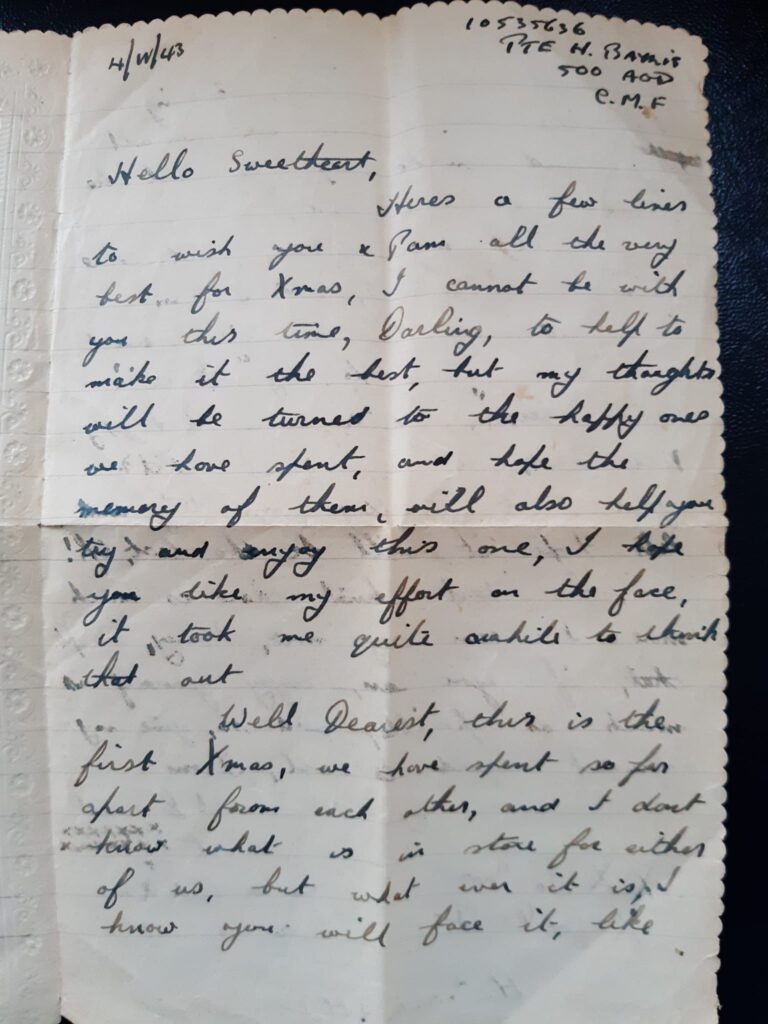 4/11/43
10535636
PTE H. 
500 AOD
C.M.F
Hello Sweetheart,
Heres a few lines
to wish you & Pam all the very
best for Xmas, I cannot be with
you this time, Darling, to help to
make it the best, but my thoughts
will be turned to the happy ones
we have spent, and hope the
memory of them, will also help you
try, and enjoy this one, I hope
you like my effort on the face,
it took me quite awhile to think
that out
Well Dearest, this is the
first Xmas, we have spent so far
apart from each other, and I dont
know what is in store for either
of us, but what ever it is, I
know you will face it, like